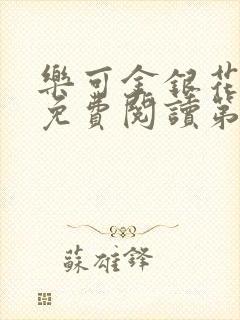 樂可金銀花
免費閱讀第
蘇雄鋒